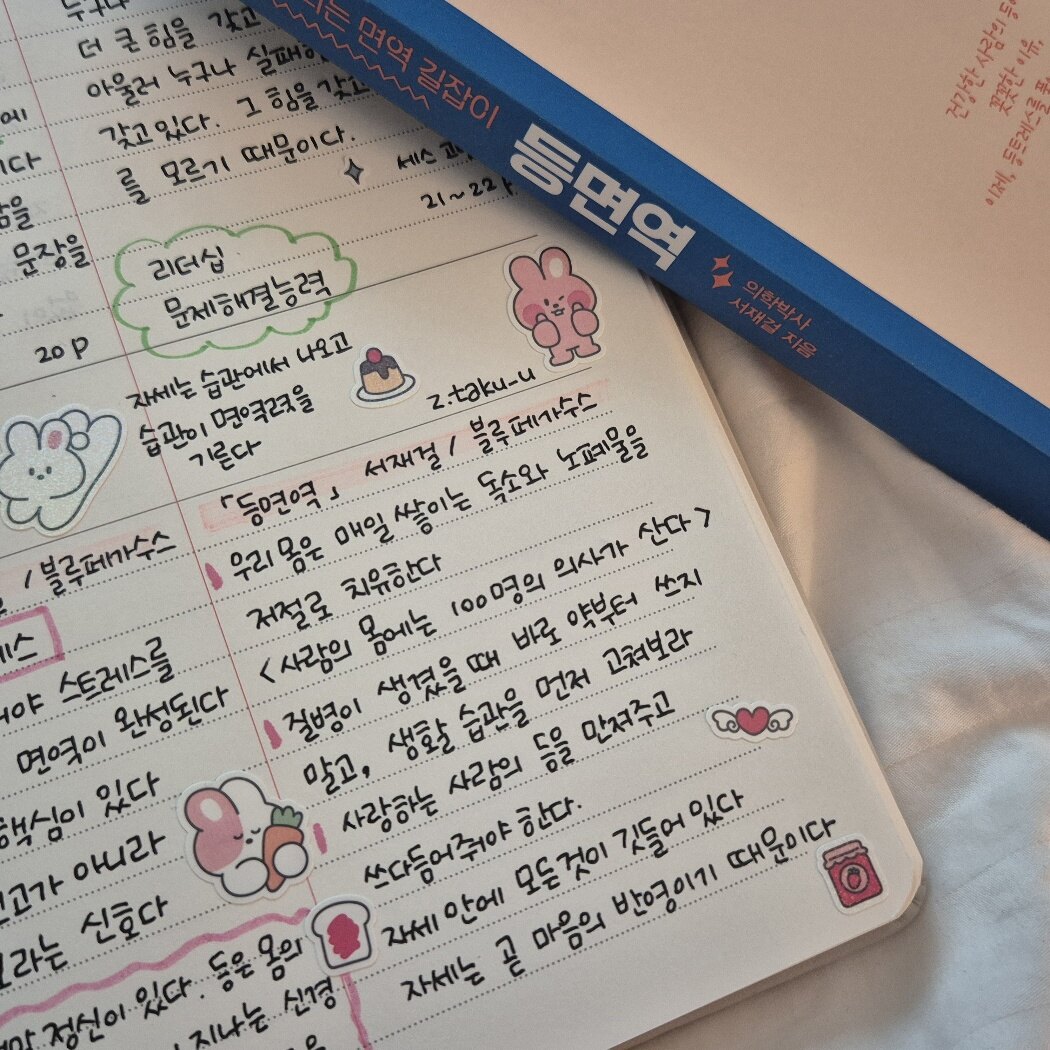 누구나
더 큰 힘을 갖고
아울러 누구나 실패
갖고 있다. 그 힘을 갖고
를 모르기 때문이다.
세스
21~22
문장을
20 p
리더십
문제해결능력
자세는 습관에서 나오고
습관이 면역력을
기른다
z.taku-u
「등면역」 서재걸 / 블루페가수스
우리 몸은 매일 쌓이는 독소와 노폐물을
저절로 치유한다
<사람의 몸에는 100명의 의사가 산다>
질병이 생겼을 때 바로 약부터 쓰지
말고, 생활 습관을 먼저 고쳐보라
사랑하는 사람의 등을 만져주고
쓰다듬어줘야 한다.
자세 안에 모든것이 깃들어 있다
자세는 곧 마음의 반영이기 때문이다
/ 블루페가수스
스트레스를
면역이 완성된다
핵심이 있다
아니라
신호다
정신이 있다. 등은 몸의
지나는 신경
면역 길잡이
등면역
의학박사
서재걸 지음
건강한 사람의
꼿꼿한 이유,
이제, 등트레스를